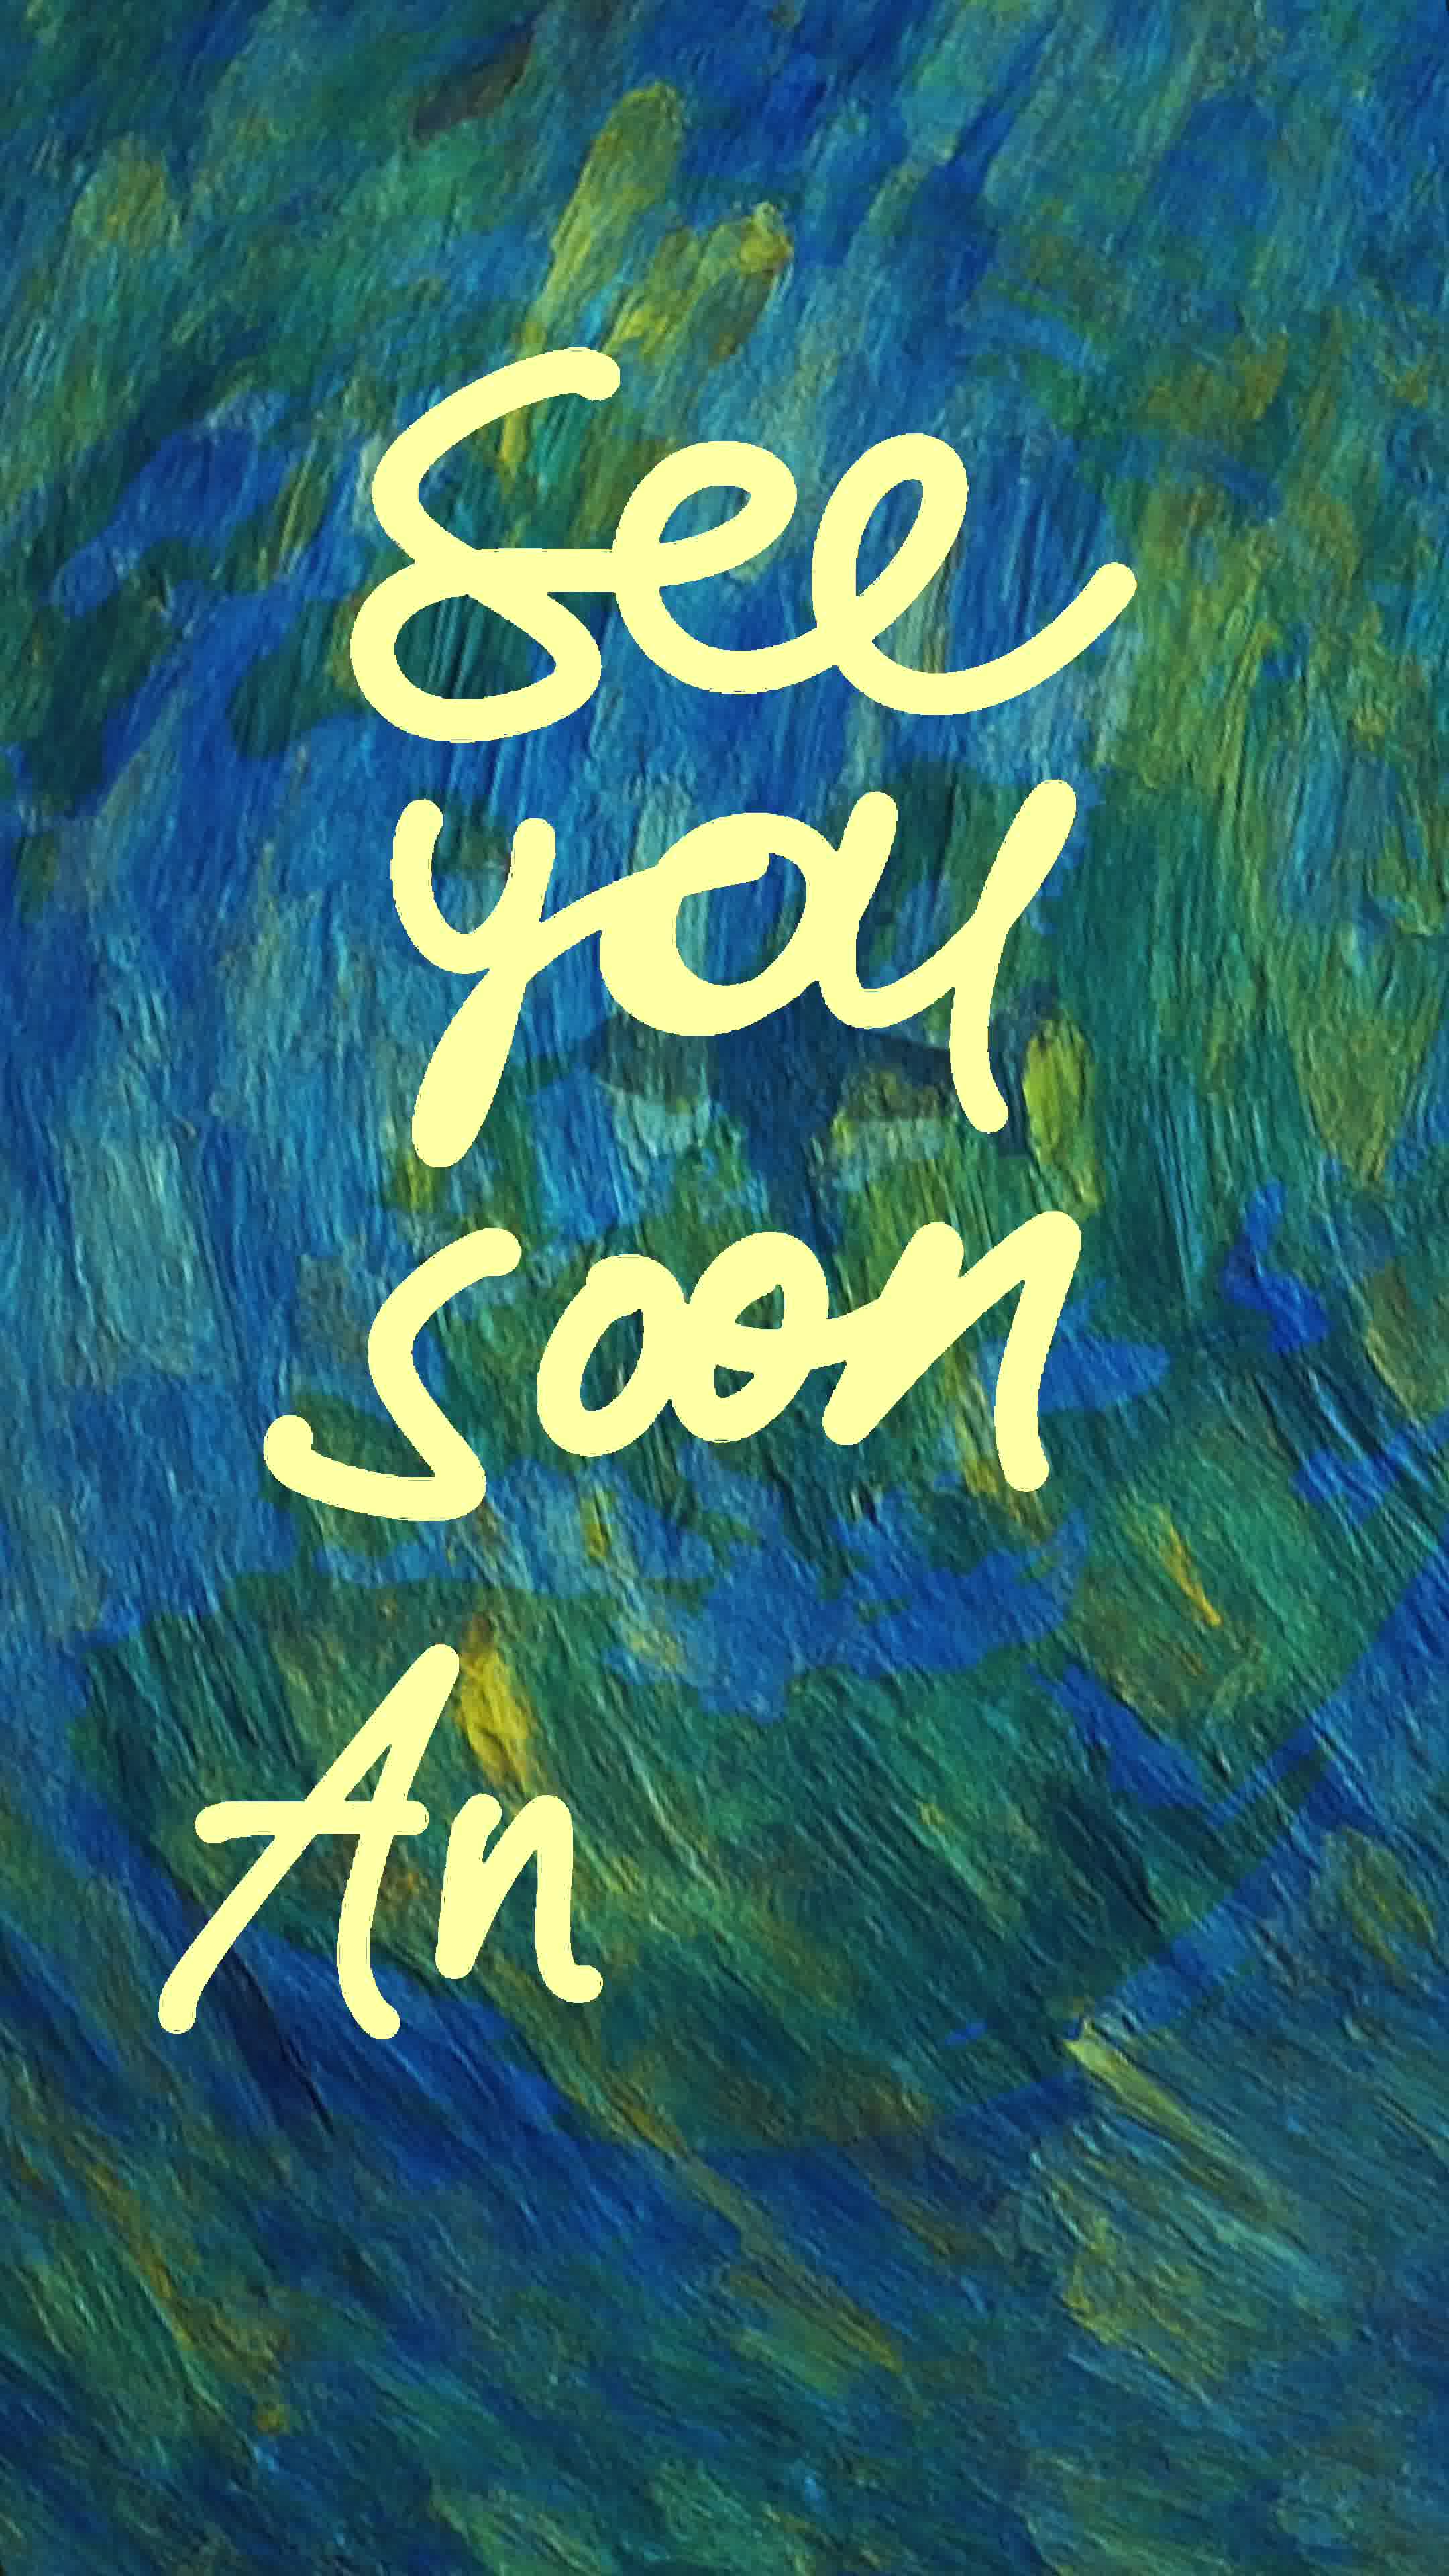 See
you
soon
An